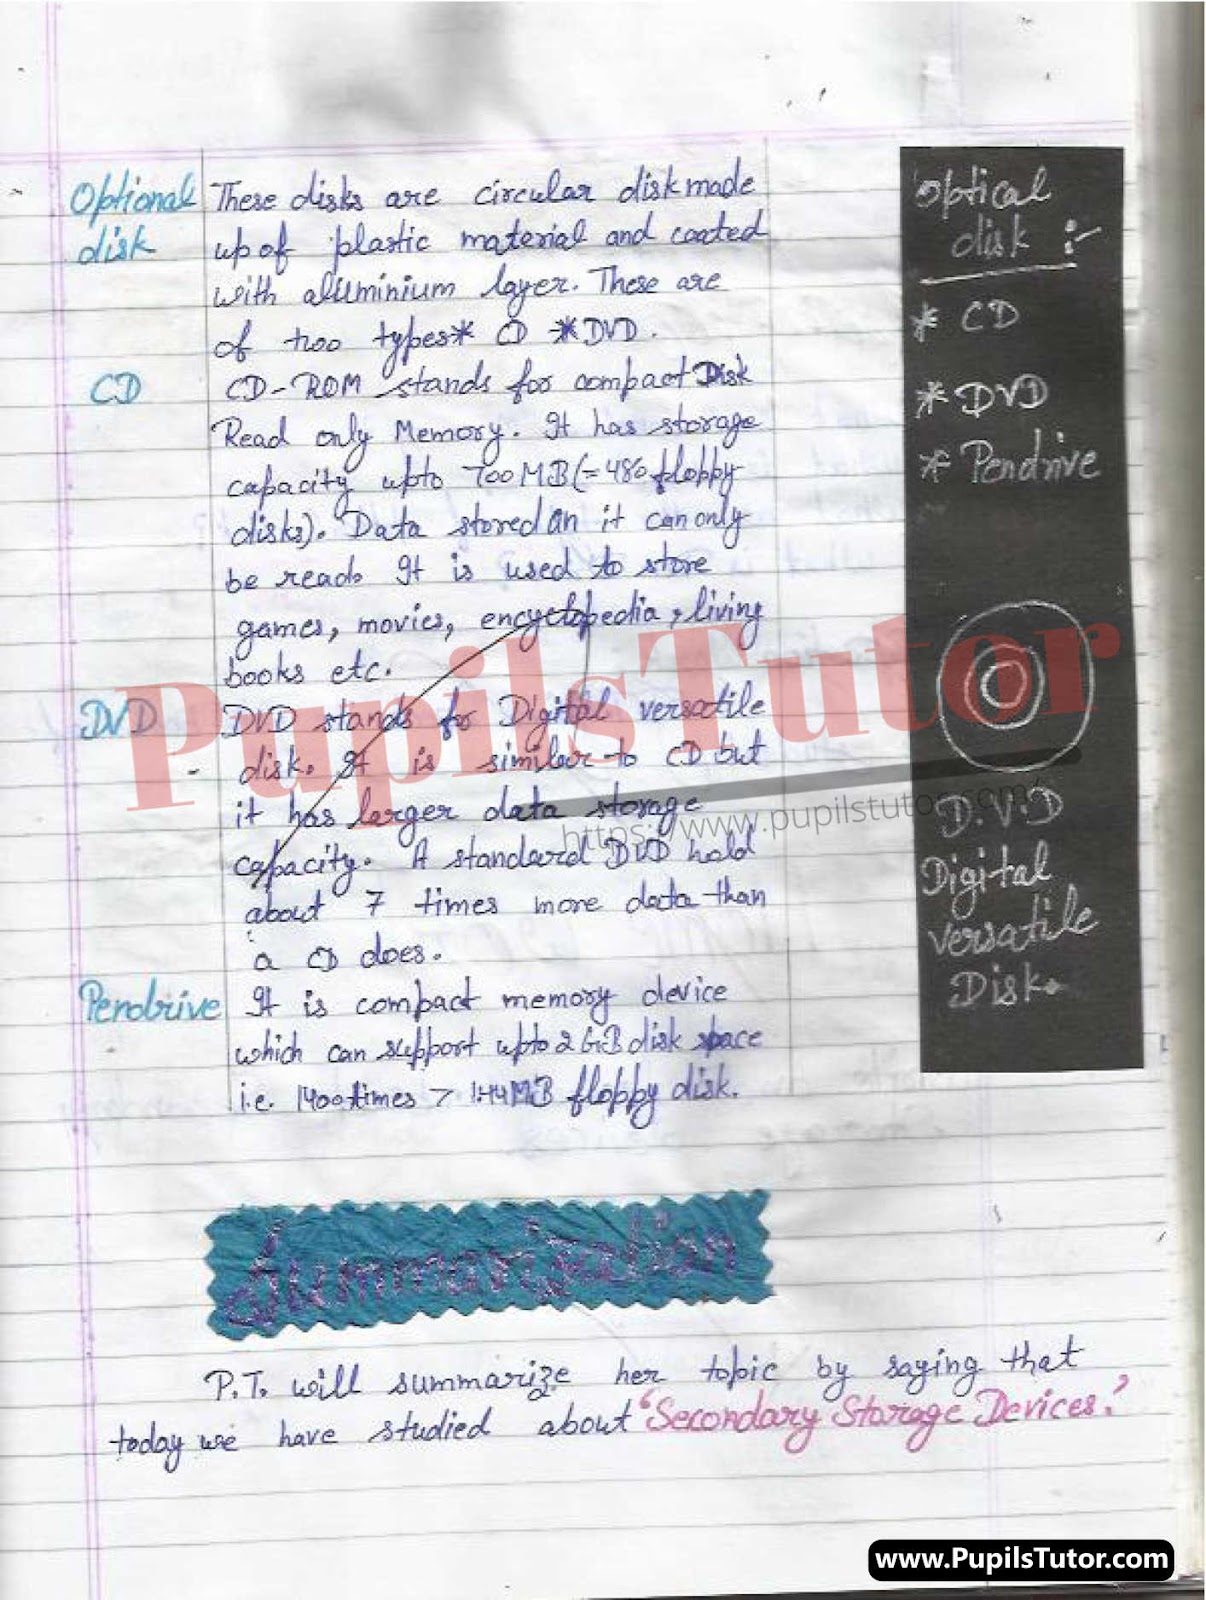 Optional
disk
These disks are circular disk made
up of plastic material and coated
with aluminium layer. These are
of two types* CD *DVD.
CD
CD-ROM stands for compact Disk
Read only Memory. It has storage
capacity upto 700MB (=480 floppy
disks). Data stored in it can only
be read. It is used to store
games, movies, encyclopedia, living
books etc.
DVD
DVD stands for Digital versatile
disk. It is similar to CD but
it has larger data storage
capacity. A standard DVD hold
about 7 times more data than
a CD does.
Pendrive
It is compact memory device
which can support upto 2 GB disk space
i.e. 1400 times > 1.44MB floppy disk.
Optical
disk :-
* CD
* DVD
* Pendrive
D.V.D
Digital
versatile
Disk.
PupilsTutor
https://www.pupilstutor.com
Summarization
P.T. will summarize her topic by saying that
today we have studied about 'Secondary Storage Devices.'
www.PupilsTutor.com